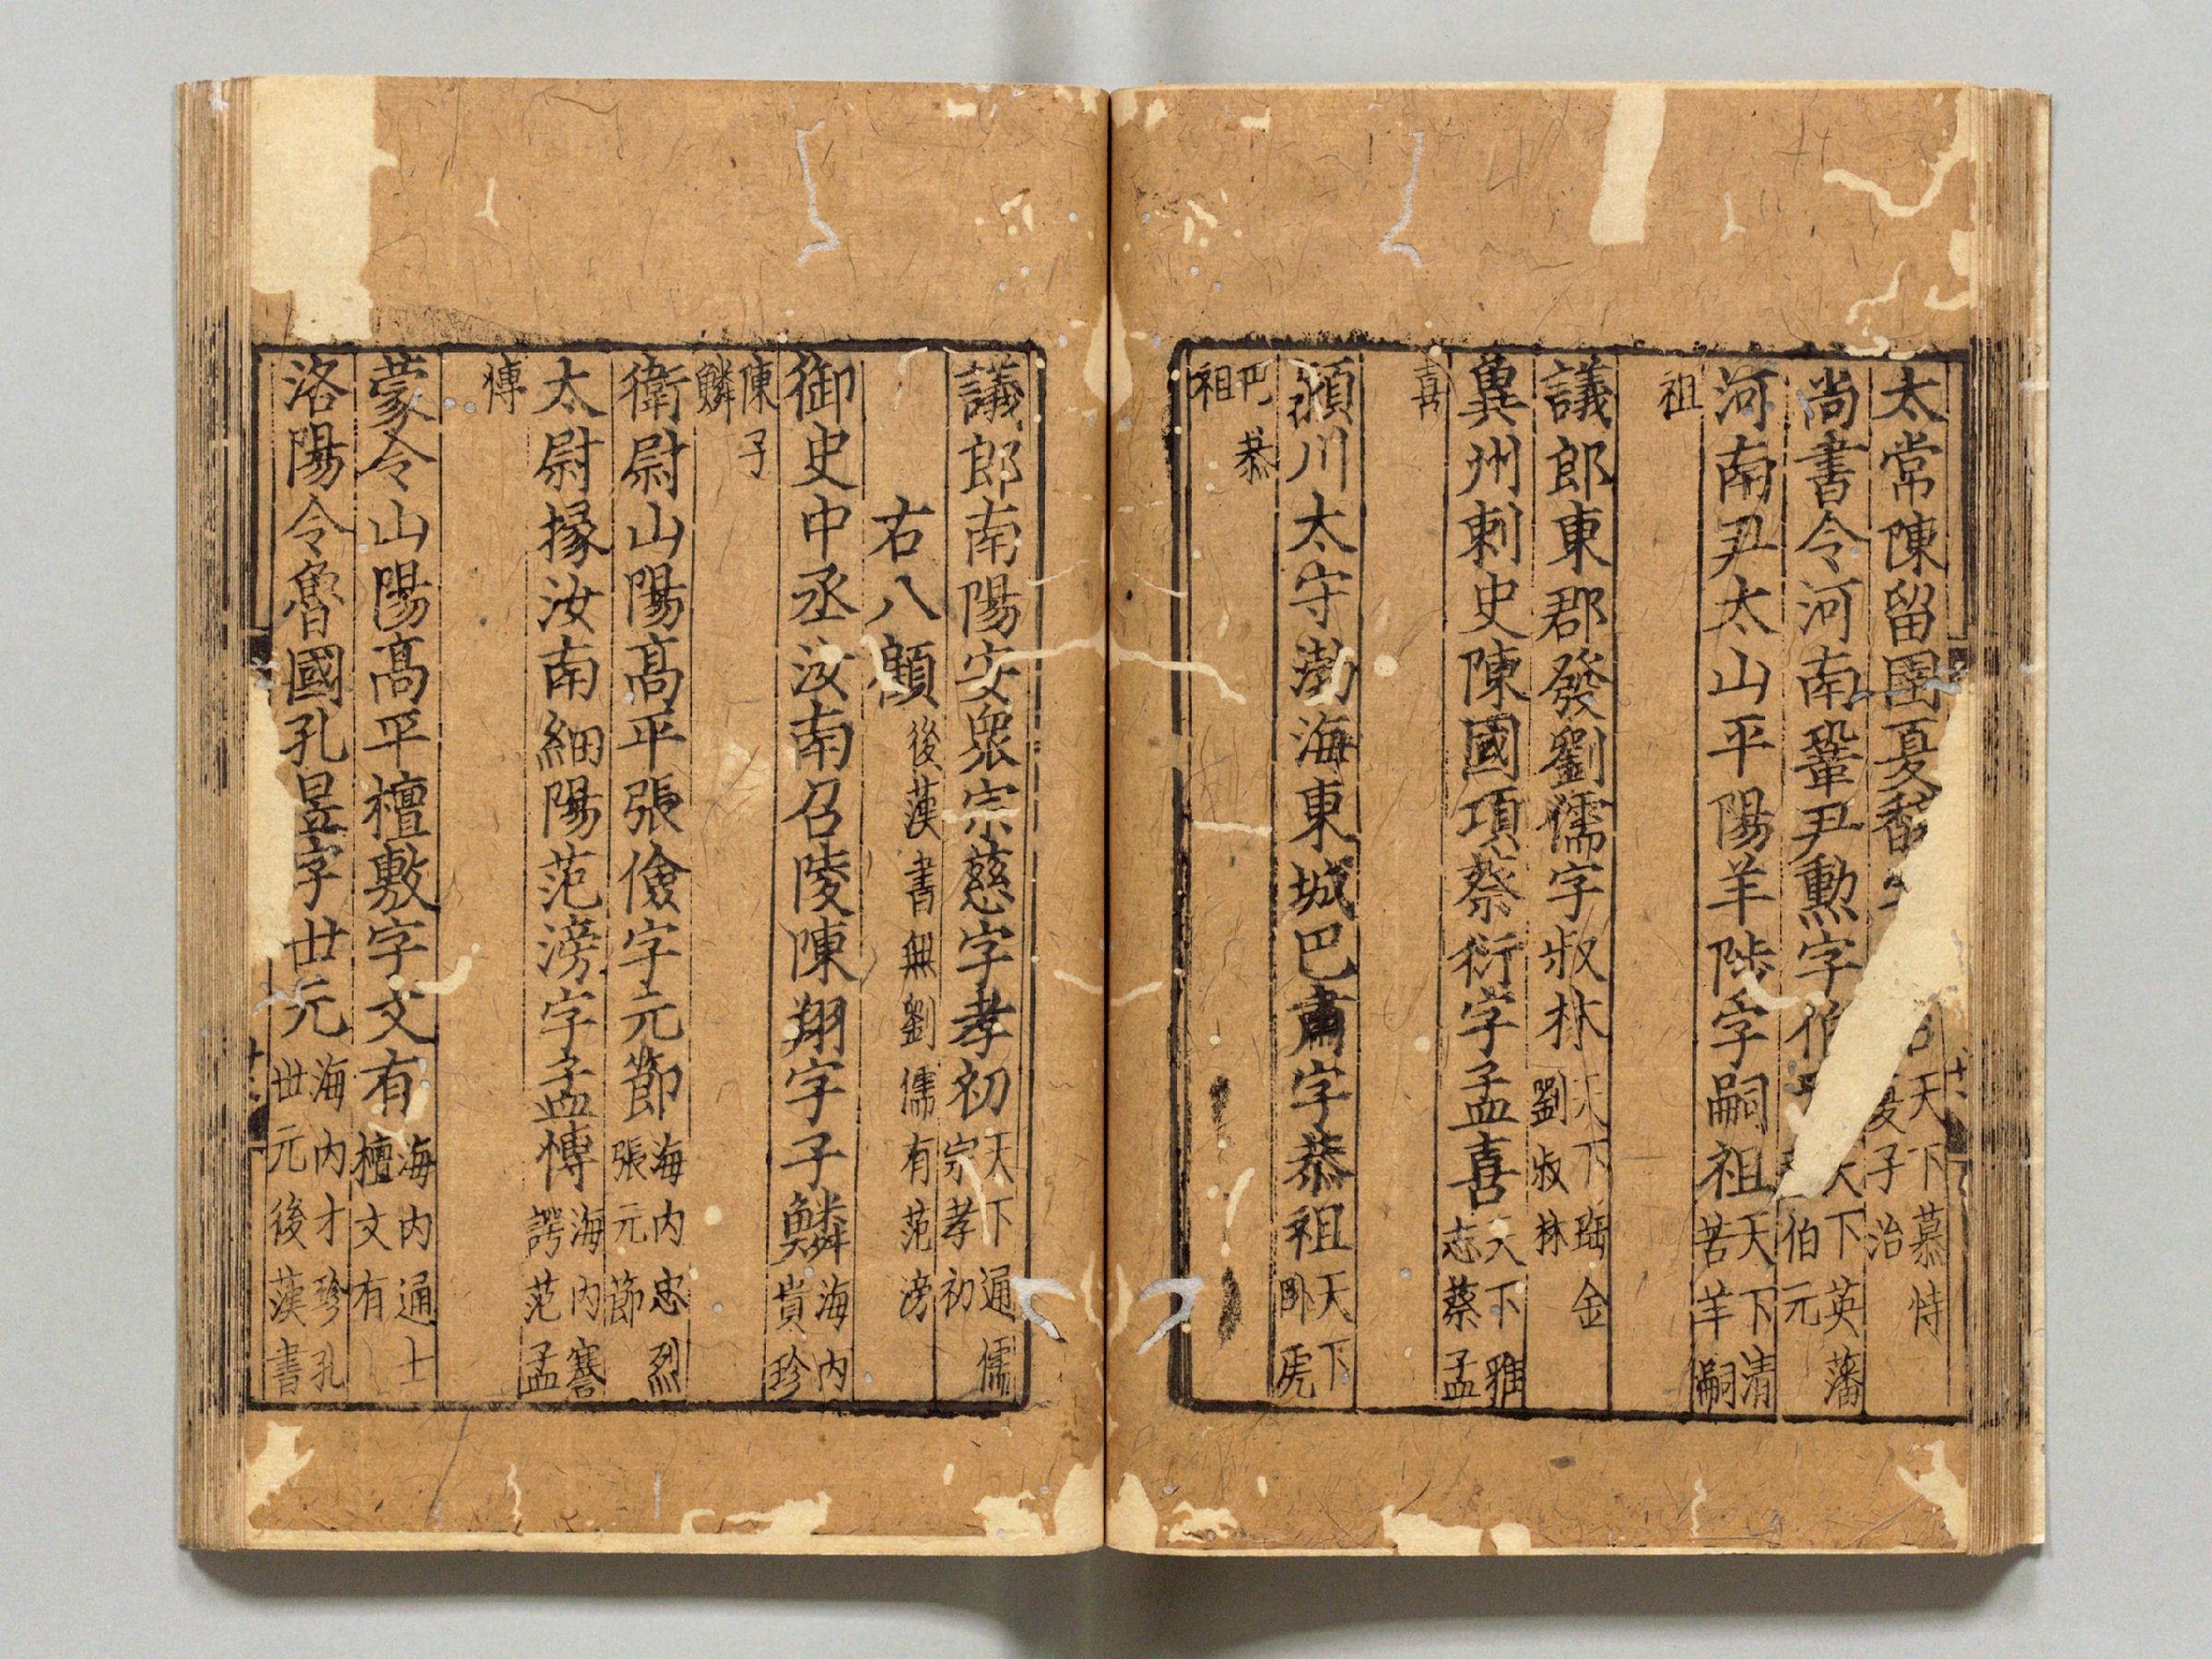 太常陳留圉夏馥
天下慕恃
子治
尚書令河南鞏尹勲字伯
下英藩
伯元
河南尹太山平陽羊陟字嗣祖天下清
苦羊嗣
祖
議郎東郡發劉儒字叔林天下珤金
劉叔林
兾州刺史陳國項蔡衍字孟喜天下雅
志蔡孟
喜
潁川太守渤海東城巴肅字恭祖天下
卧虎
巴恭
祖
議郎南陽安衆宗慈字孝初天下通儒
宗孝初
右八顧後漢書無劉儒有范滂
御史中丞汝南召陵陳翔字子鱗海内
貴珍
陳子
鱗
衛尉山陽高平張儉字元節海内忠烈
張元節
太尉掾汝南細陽范滂字孟愽海内謇
諤范孟
愽
蒙令山陽高平檀敷字文有海内通士
檀文有
洛陽令魯國孔昱字世元海内才珍孔
世元後漢書